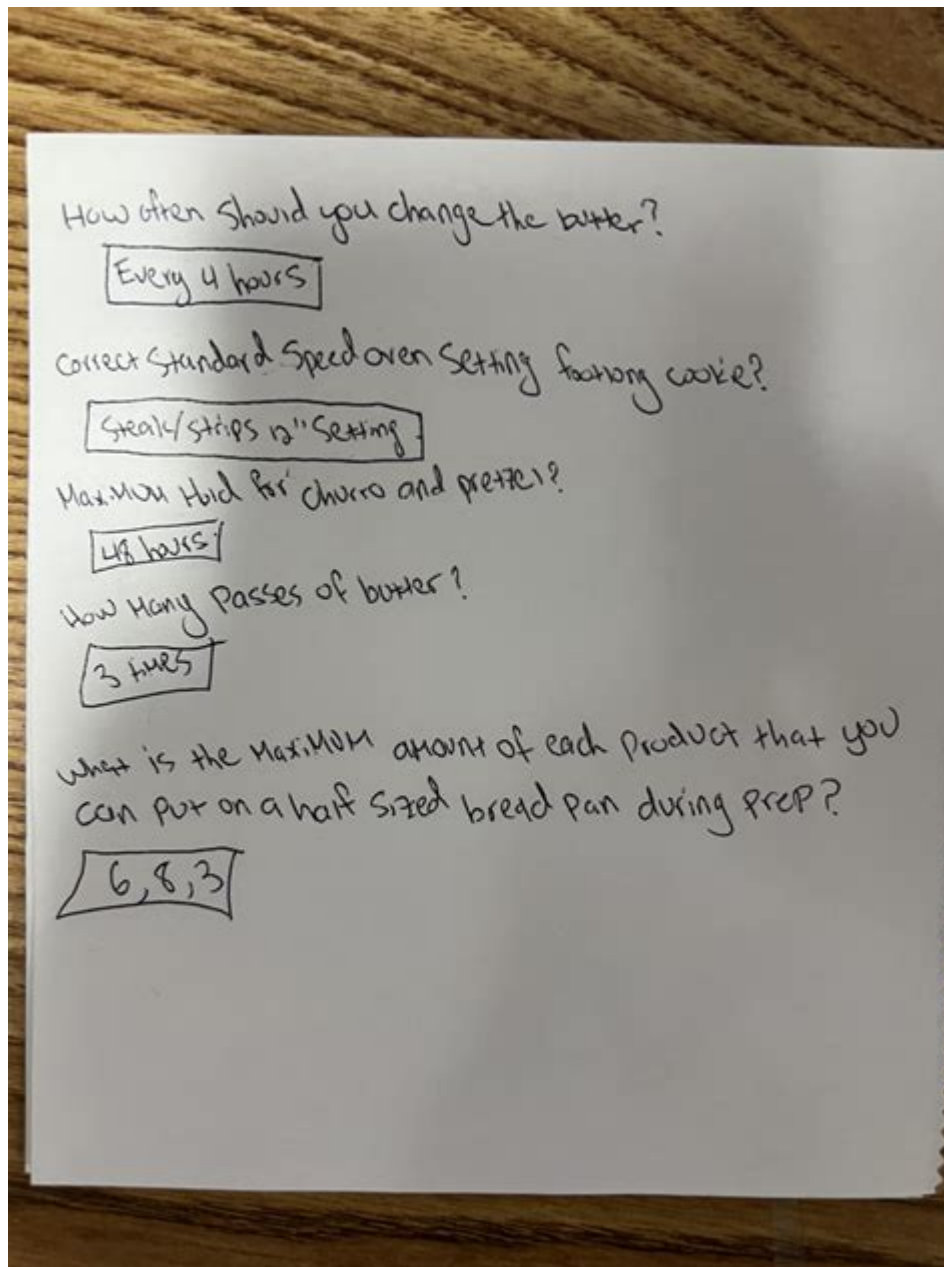 How often should you change the butter?
Every 4 hours
Correct Standard Speed oven Setting footlong cookie?
Steak/Strips 12" Setting
Maximum Hold for churro and pretzel?
48 hours
How Many Passes of butter?
3 times
What is the Maximum amount of each Product that you
can put on a half sized bread pan during prep?
6, 8, 3